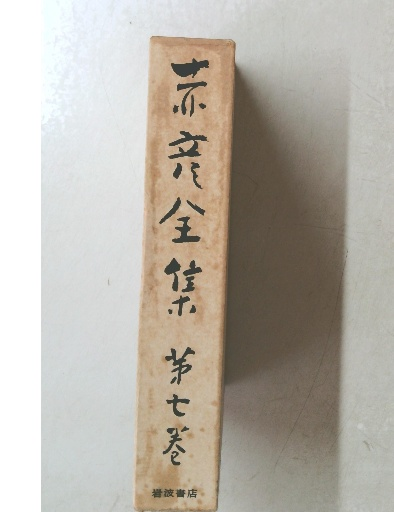 赤彦全集 第七巻
岩波書店